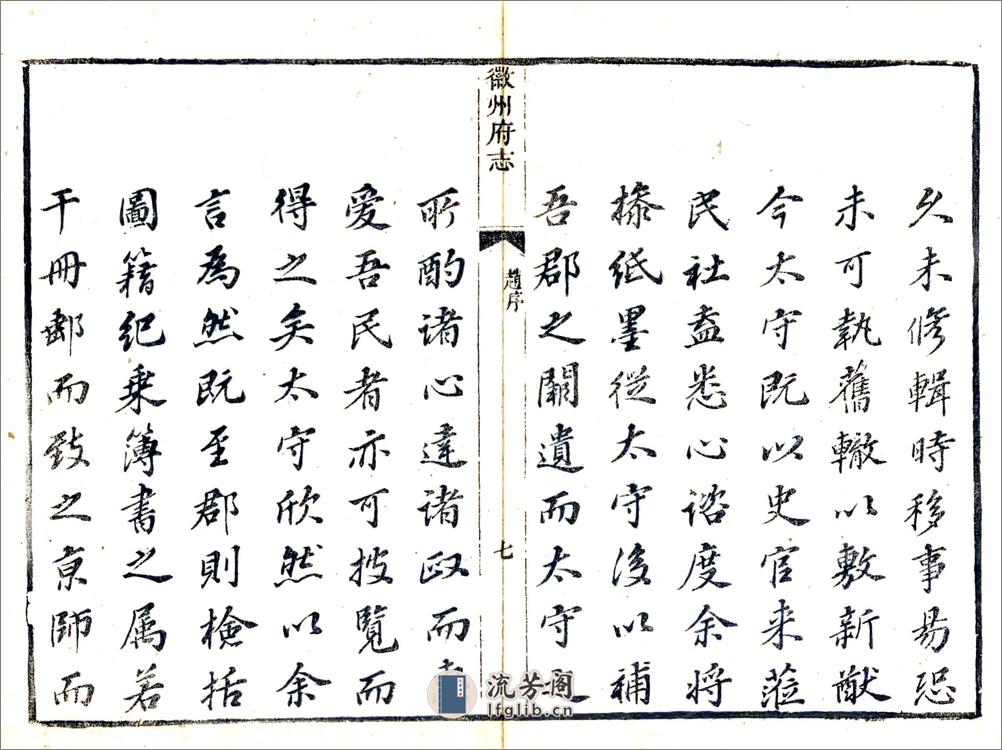 久未修輯時移事易恐
未可執舊轍以敷新猷
今太守既以史官来蒞
民社盍悉心諮度余将
操紙墨從太守後以補
吾郡之闕遺而太守
徽州府志
趙序
七
所酌诸心達诸政而
爱吾民者亦可披覽而
得之矣太守欣然以余
言為然既至郡則檢括
圖籍纪乗簿書之属若
干冊郵而致之京師而
流芳阁
lfglib.cn